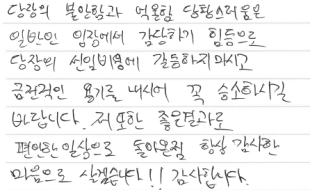 당장의 불안함과 억울함 당황스러움은
일반인 입장에서 감당하기 힘듬으로
당장의 선임비용에 갈등하지마시고
금전적인 용기를 내시어 꼭 승소하시길
바랍니다. 저 또한 좋은결과로
편안한 일상으로 돌아온점 항상 감사한
마음으로 살겠습니다!! 감사합니다.